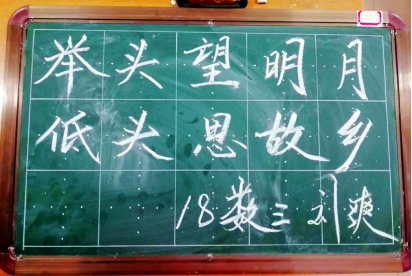 举头望明月
低头思故乡
18数三 刘爽